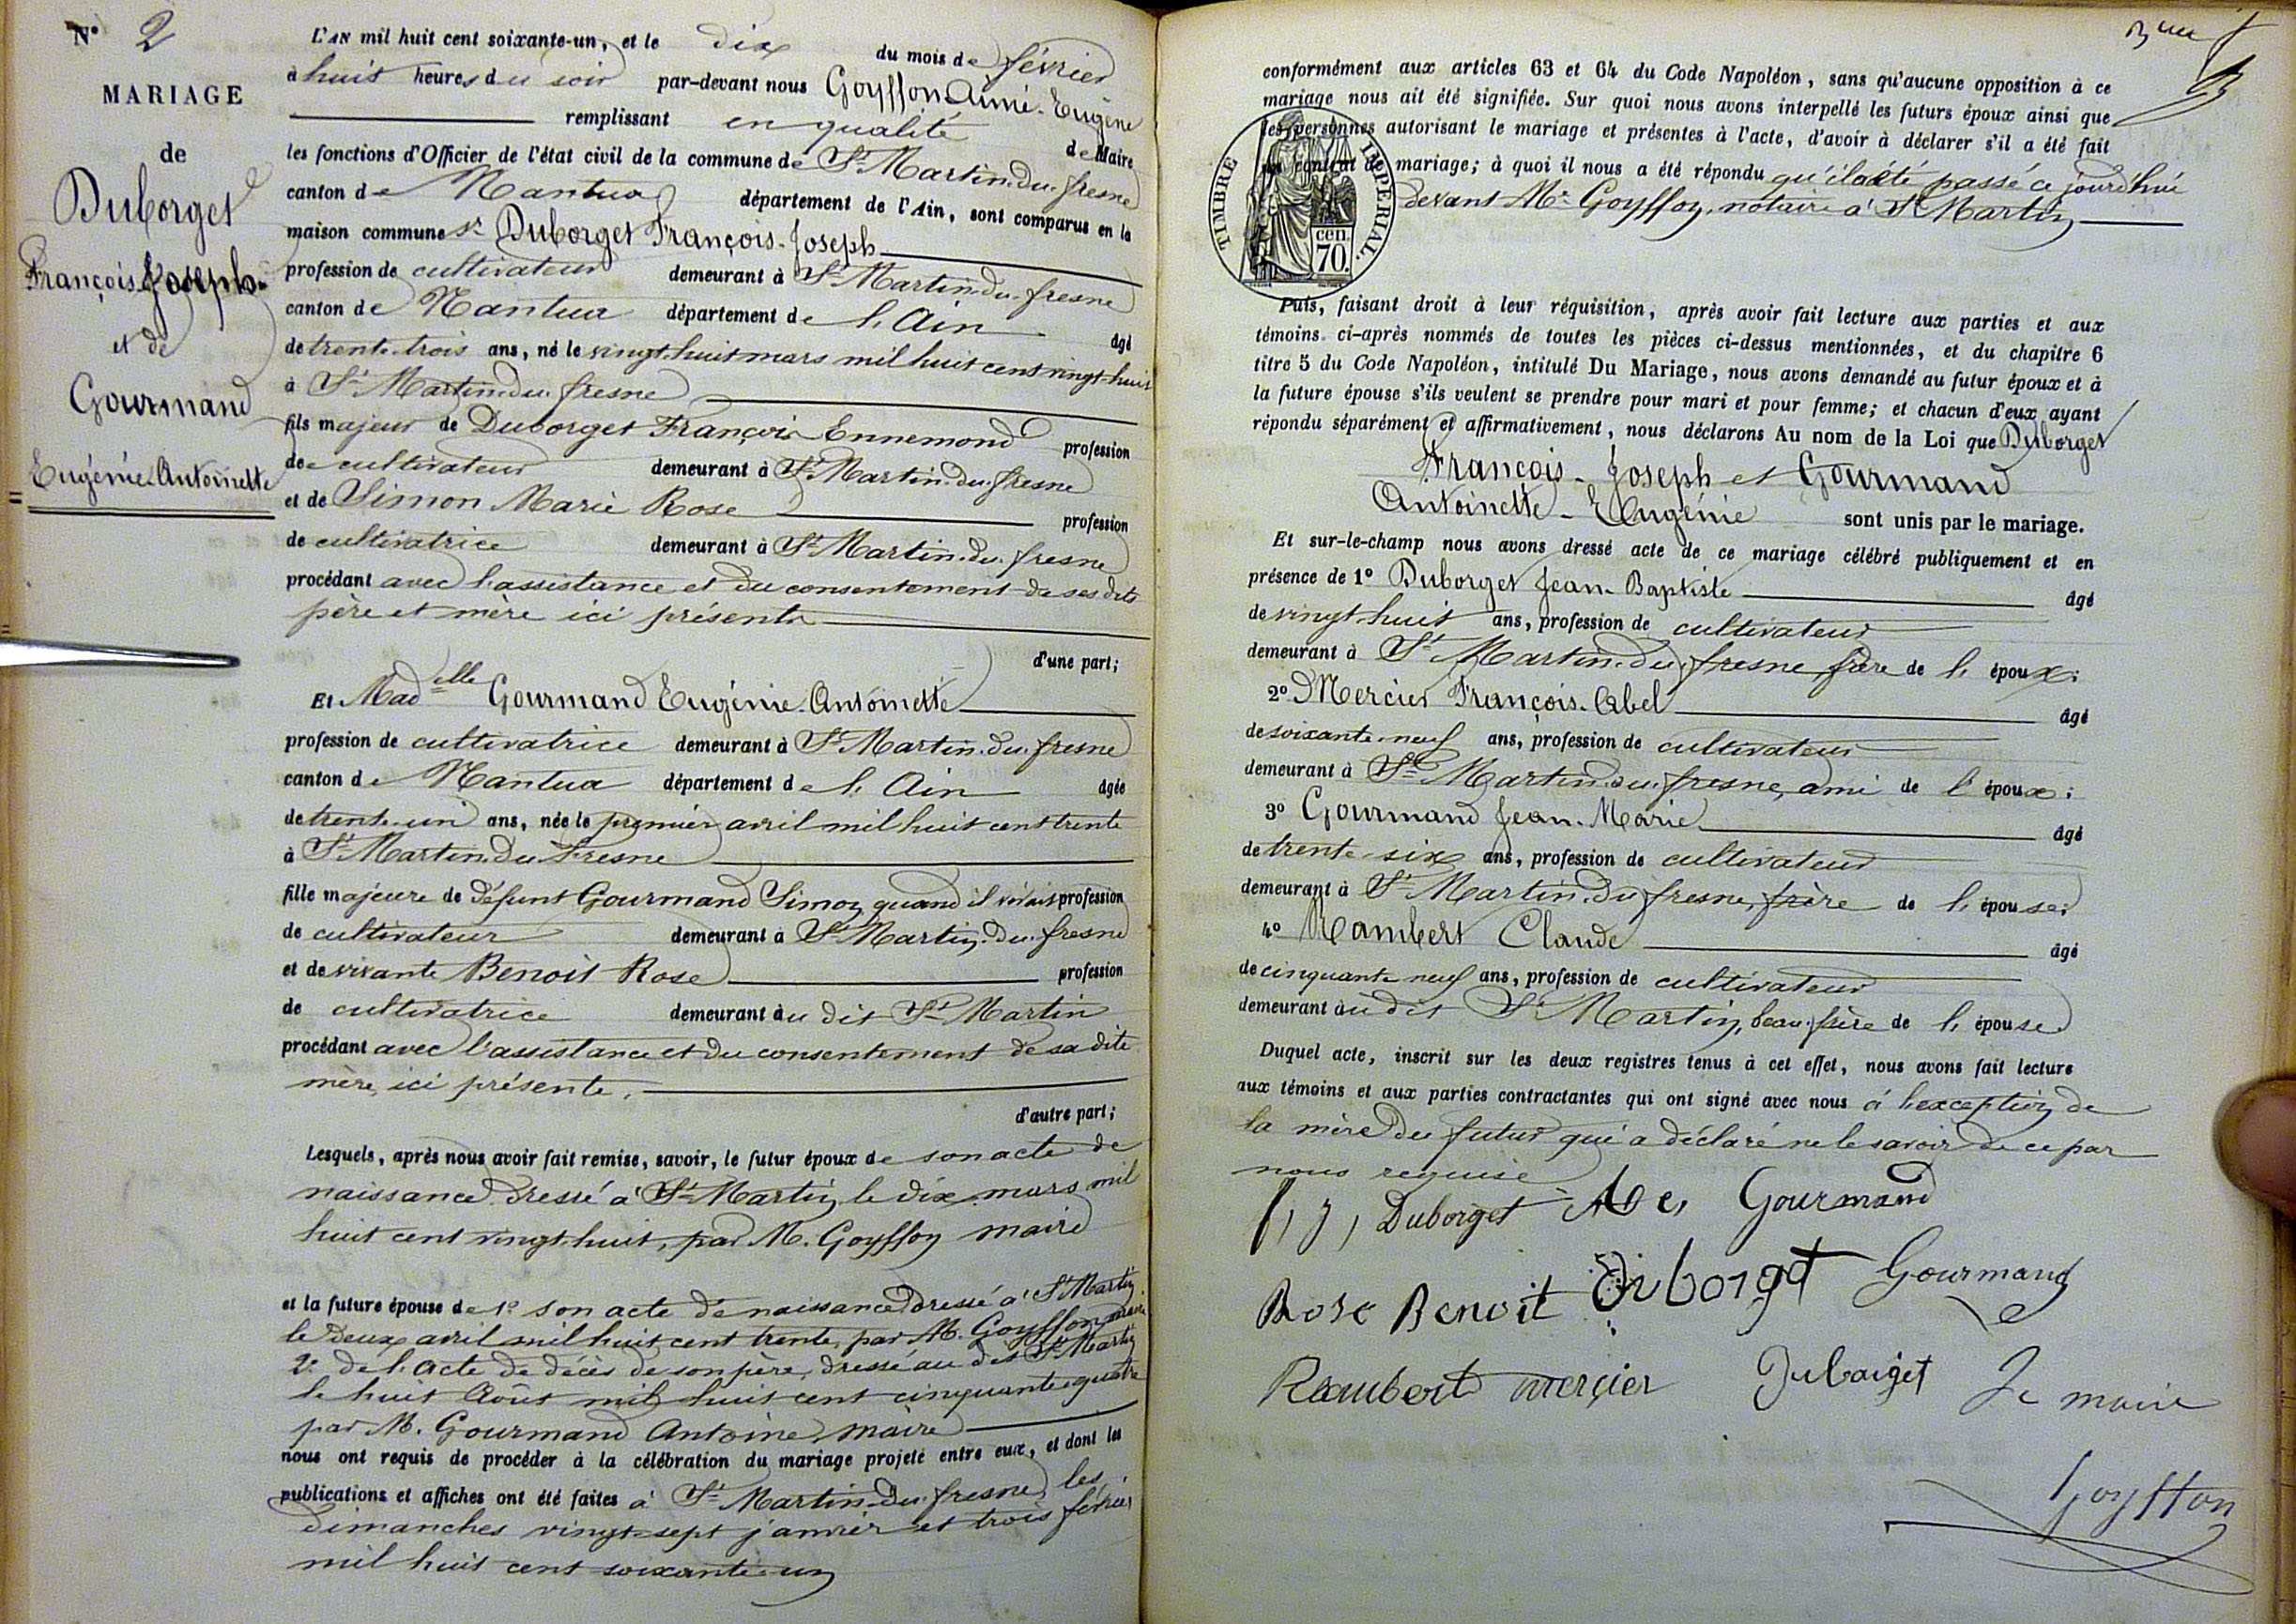 N° 2
MARIAGE
de
Duborget
François Joseph
et de
Gourmand
Eugénie Antoinette
L'AN mil huit cent soixante-un, et le dix du mois de février
à huit heures du soir par-devant nous Goyffon Aimé-Eugène
remplissant en qualité de Maire
les fonctions d'Officier de l'état civil de la commune de St Martin-du-fresne
canton de Nantua département de l'Ain, sont comparus en la
maison commune sr Duborget François-Joseph
profession de cultivateur demeurant à St Martin-du-fresne
canton de Nantua département de l'Ain âgé
de trente-trois ans, né le vingt-huit mars mil huit cent vingt-huit
à St Martin-du-fresne
fils majeur de Duborget François Ennemond profession
de cultivateur demeurant à St Martin-du-fresne
et de Simon Marie Rose profession
de cultivatrice demeurant à St Martin-du-fresne
procédant avec l'assistance et du consentement de ses dits
père et mère ici présents
d'une part;
Et Madelle Gourmand Eugénie-Antoinette
profession de cultivatrice demeurant à St Martin-du-fresne
canton de Nantua département de l'Ain âgée
de trente-un ans, née le premier avril mil huit cent trente
à St Martin-du-Fresne
fille majeure de défunt Gourmand Simon, quand il vivait profession
de cultivateur demeurant à St Martin-du-fresne
et de vivante Benoit Rose profession
de cultivatrice demeurant au dit St Martin
procédant avec l'assistance et du consentement de sa dite
mère, ici présente.
d'autre part;
Lesquels, après nous avoir fait remise, savoir, le futur époux de son acte de
naissance dressé à St Martin le dix mars mil
huit cent vingt-huit, par M. Goyffon maire
et la future épouse de 1° son acte de naissance dressé à St Martin
le deux avril mil huit cent trente, par M. Goyffon maire
2° de l'acte de décès de son père, dressé au dit St Martin
le huit Août mil huit cent cinquante-quatre
par M. Gourmand Antoine, maire
nous ont requis de procéder à la célébration du mariage projeté entre eux, et dont les
publications et affiches ont été faites à St Martin-du-fresne, les
dimanches vingt-sept janvier et trois février
mil huit cent soixante-un
conformément aux articles 63 et 64 du Code Napoléon, sans qu'aucune opposition à ce
mariage nous ait été signifiée. Sur quoi nous avons interpellé les futurs époux ainsi que
les personnes autorisant le mariage et présentes à l'acte, d'avoir à déclarer s'il a été fait
un contrat de mariage; à quoi il nous a été répondu qu'il a été passé ce jourd'hui
devant Me Goyffon, notaire à St Martin
TIMBRE IMPERIAL.
cen.
70.
Puis, faisant droit à leur réquisition, après avoir fait lecture aux parties et aux
témoins ci-après nommés de toutes les pièces ci-dessus mentionnées, et du chapitre 6
titre 5 du Code Napoléon, intitulé Du Mariage, nous avons demandé au futur époux et à
la future épouse s'ils veulent se prendre pour mari et pour femme; et chacun d'eux ayant
répondu séparément et affirmativement, nous déclarons Au nom de la Loi que Duborget
François-Joseph et Gourmand
Antoinette-Eugénie sont unis par le mariage.
Et sur-le-champ nous avons dressé acte de ce mariage célébré publiquement et en
présence de 1° Duborget Jean-Baptiste âgé
de vingt-huit ans, profession de cultivateur
demeurant à St Martin-du-fresne, frère de l'époux;
2° Mercier François-Abel âgé
de soixante-neuf ans, profession de cultivateur
demeurant à St Martin-du-fresne, ami de l'époux;
3° Gourmand Jean-Marie âgé
de trente-six ans, profession de cultivateur
demeurant à St Martin-du-fresne, frère de l'épouse;
4° Rambert Claude âgé
de cinquante-neuf ans, profession de cultivateur
demeurant au dit St Martin, beau-frère de l'épouse
Duquel acte, inscrit sur les deux registres tenus à cet effet, nous avons fait lecture
aux témoins et aux parties contractantes qui ont signé avec nous à l'exception de
la mère du futur qui a déclaré ne le savoir de ce par
nous requise
f, j, Duborget Gourmand
Rose Benoit Duborget Gourmand
Rambert mercier Duborget Le maire
Goyffon